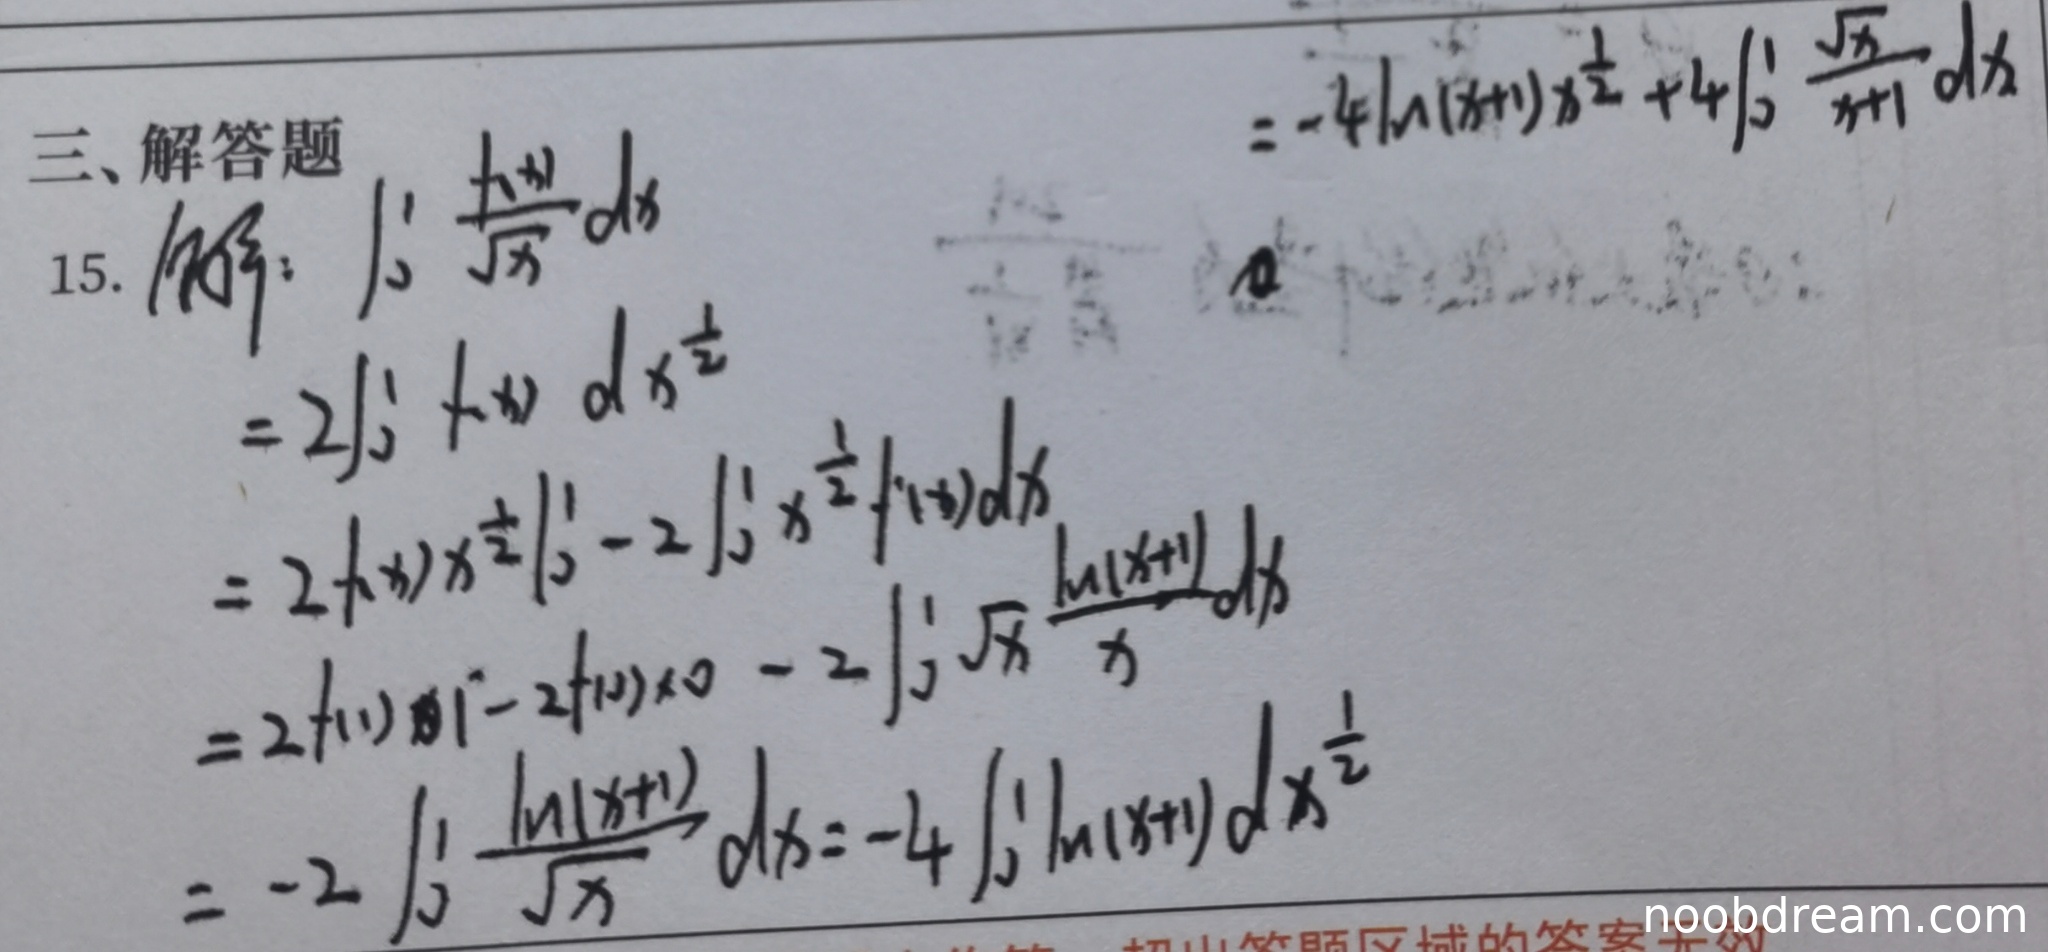 三、解答题
15. 解: ∫₀¹ f(x)/√x dx
= 2∫₀¹ f(x) dx^{1/2}
= 2f(x)x^{1/2}|₀¹ - 2∫₀¹ x^{1/2} f'(x)dx
= 2f(1)·1 - 2f(0)×0 - 2∫₀¹ √x ln(x+1)/x dx
= -2∫₀¹ ln(x+1)/√x dx = -4∫₀¹ ln(x+1) dx^{1/2}
= -4ln(x+1)x^{1/2} + 4∫₀¹ √x/(x+1) dx
超出答题区域的答案无效
noobdream.com